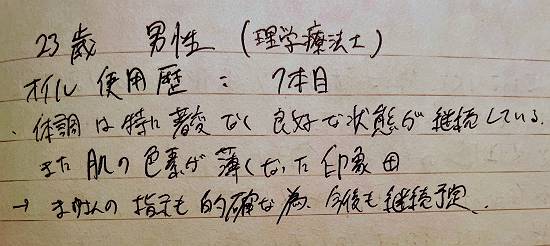 23歳 男性 (理学療法士)
オイル 使用歴 : 7本目
・体調は特に著変なく良好な状態が継続している.
また 肌の色素が薄くなった印象 ⊞
→ の指示も的確な為、今後も継続予定.